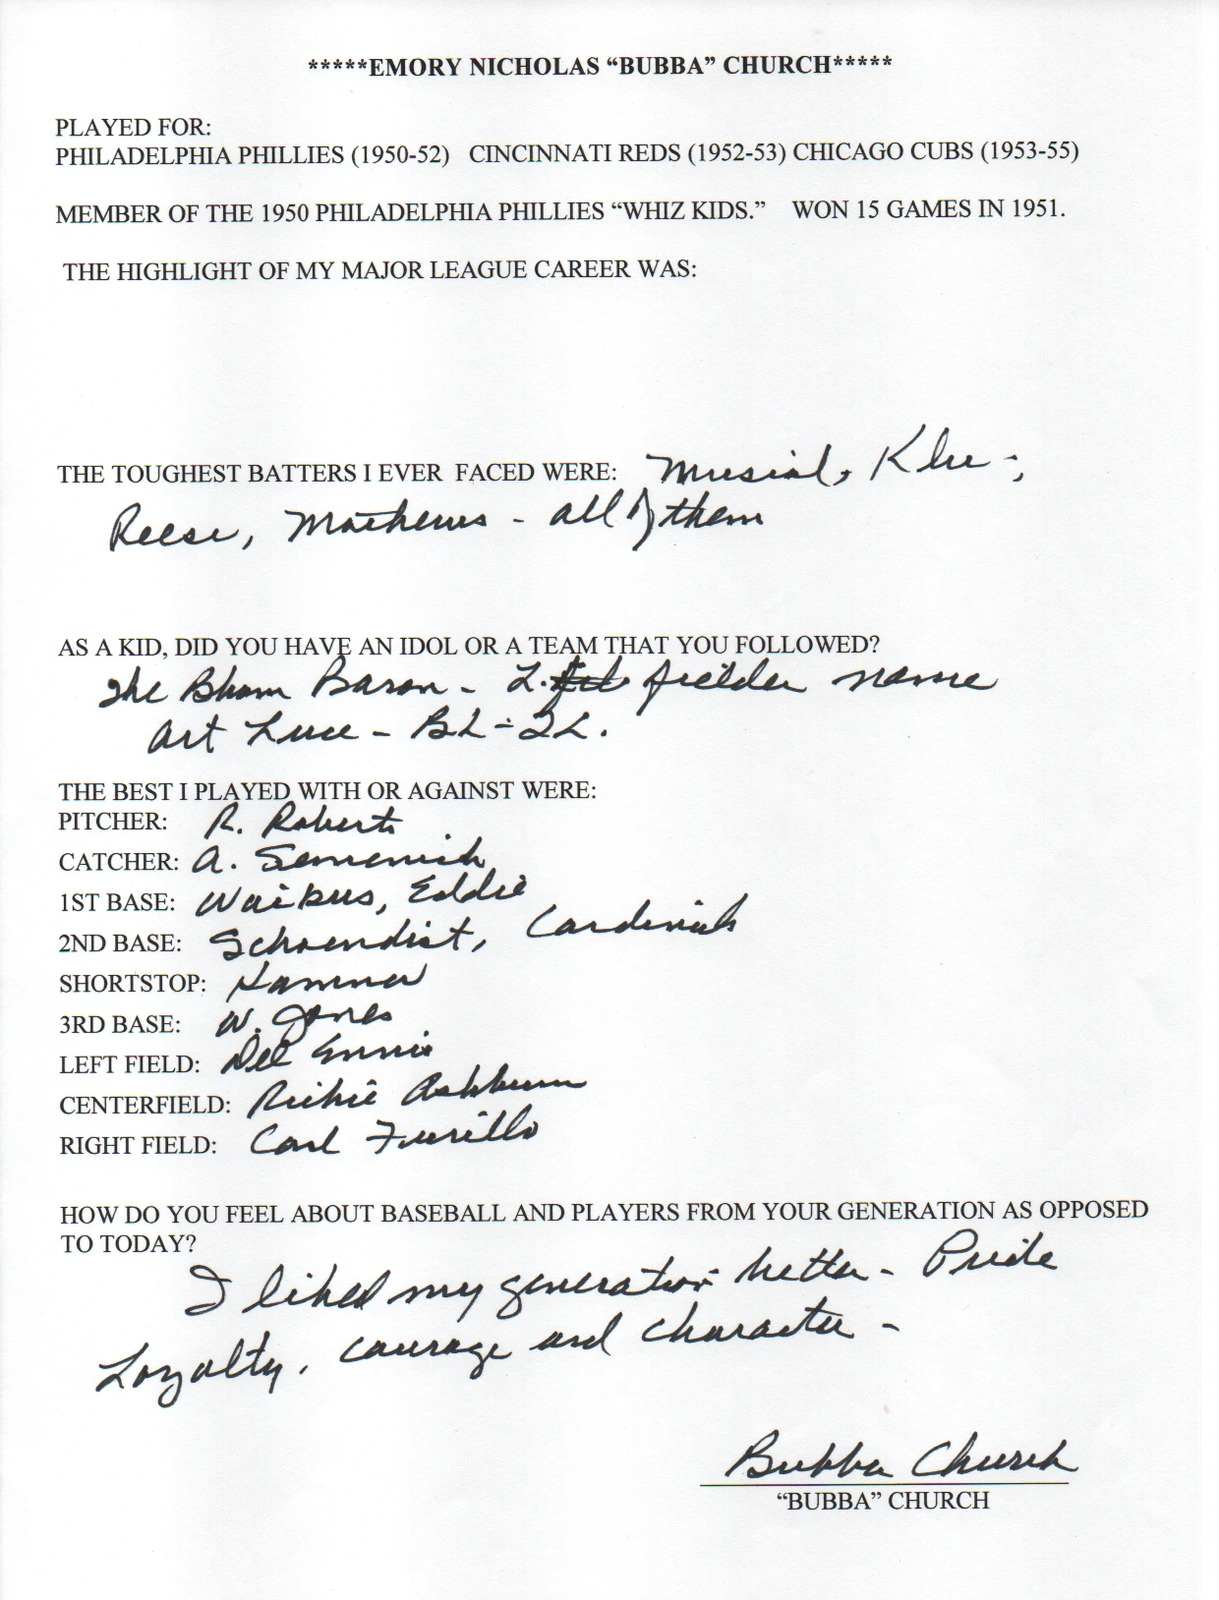 *****EMORY NICHOLAS “BUBBA” CHURCH*****
PLAYED FOR:
PHILADELPHIA PHILLIES (1950-52) CINCINNATI REDS (1952-53) CHICAGO CUBS (1953-55)
MEMBER OF THE 1950 PHILADELPHIA PHILLIES “WHIZ KIDS.” WON 15 GAMES IN 1951.
THE HIGHLIGHT OF MY MAJOR LEAGUE CAREER WAS:
THE TOUGHEST BATTERS I EVER FACED WERE: Musial, Klu -,
Reese, Mathews - all of them
AS A KID, DID YOU HAVE AN IDOL OR A TEAM THAT YOU FOLLOWED?
The Bham Baron - L. fielder name
Art Luce - BL -
THE BEST I PLAYED WITH OR AGAINST WERE:
PITCHER: R. Roberts
CATCHER: A. Semenick
1ST BASE: Waikus, Eddie
2ND BASE: Schoendist, Cardinals
SHORTSTOP: Hamner
3RD BASE: W. Jones
LEFT FIELD: Del Ennis
CENTERFIELD: Richie Ashburn
RIGHT FIELD: Carl Furillo
HOW DO YOU FEEL ABOUT BASEBALL AND PLAYERS FROM YOUR GENERATION AS OPPOSED
TO TODAY?
I liked my generation better - Pride
Loyalty, courage and character -
Bubba Church
“BUBBA” CHURCH